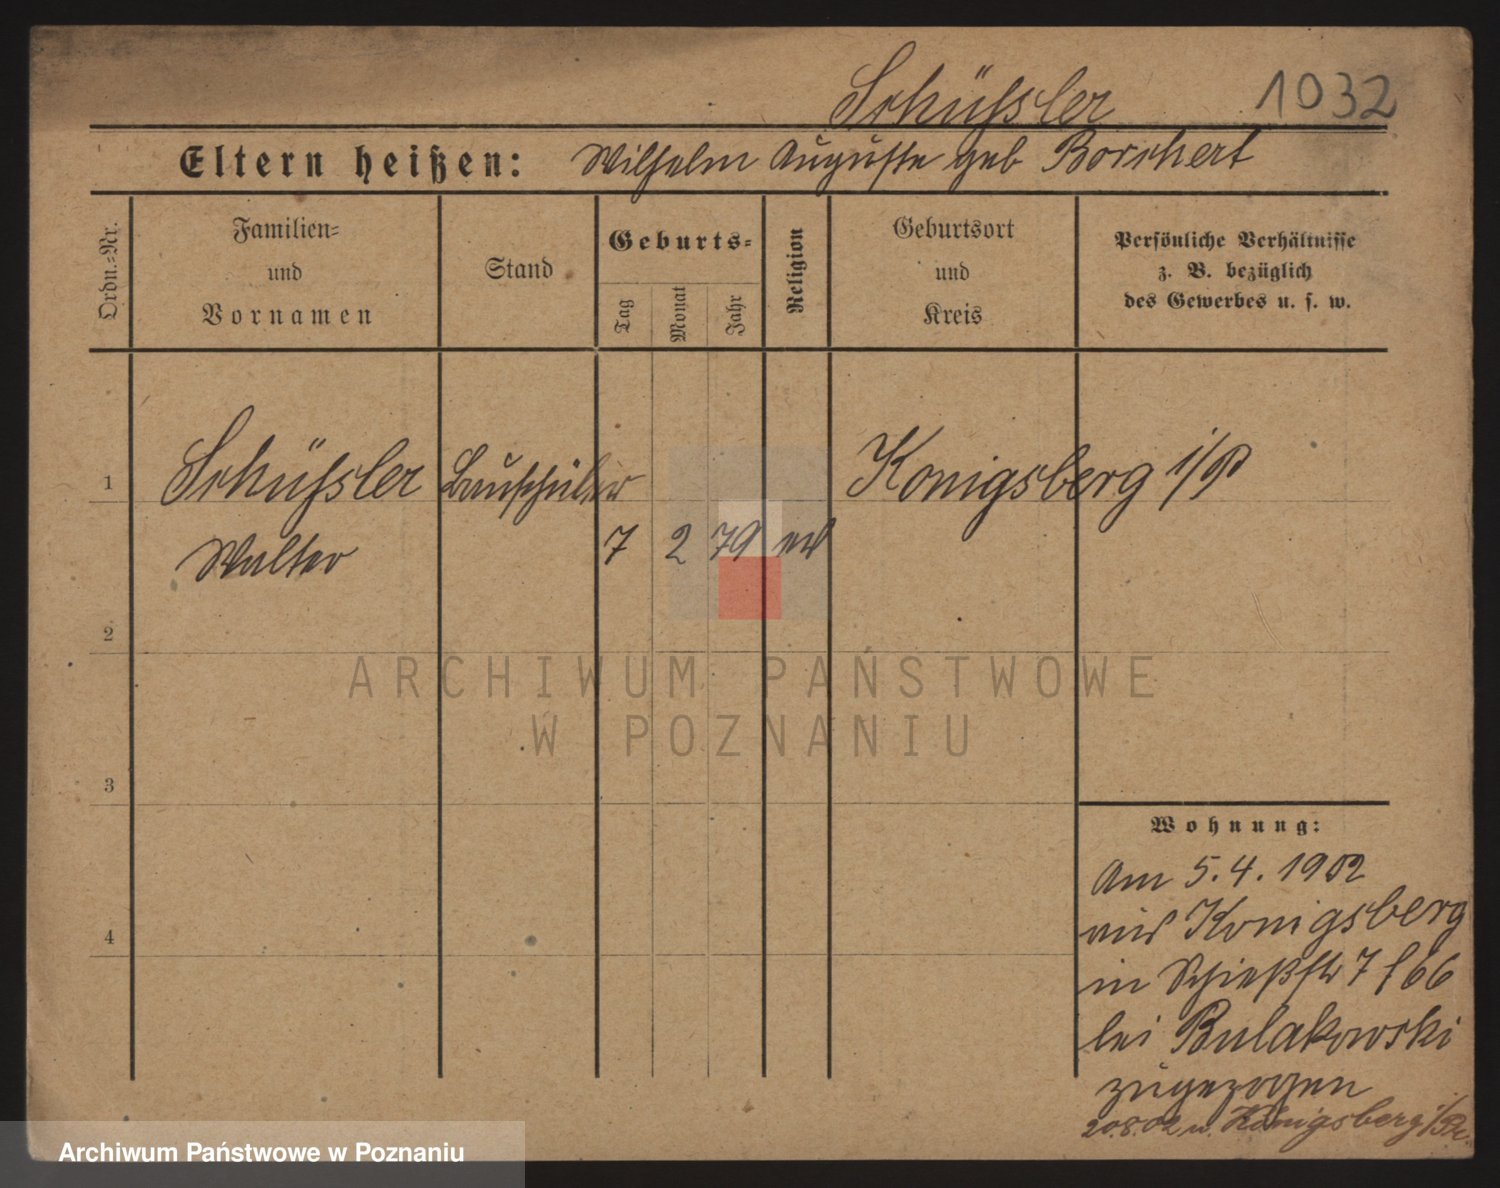 Schüssler
1032
Eltern heißen: Wilhelm Auguste geb Borchert
Ordn.-Nr.
Familien-
und
Vornamen
Stand
Geburts-
Tag
Monat
Jahr
Religion
Geburtsort
und
Kreis
Persönliche Verhältnisse
z. B. bezüglich
des Gewerbes u. s. w.
1
Schüssler Bauschüler Königsberg i/P
Walter 7 2 79
2
3
4
ARCHIWUM PAŃSTWOWE
W POZNANIU
Wohnung:
Am 5.4.1902
aus Königsberg
in Schießstr 7
bei Bulakowski
zugezogen
20.8.02 n. Königsberg i/Pr.
Archiwum Państwowe w Poznaniu